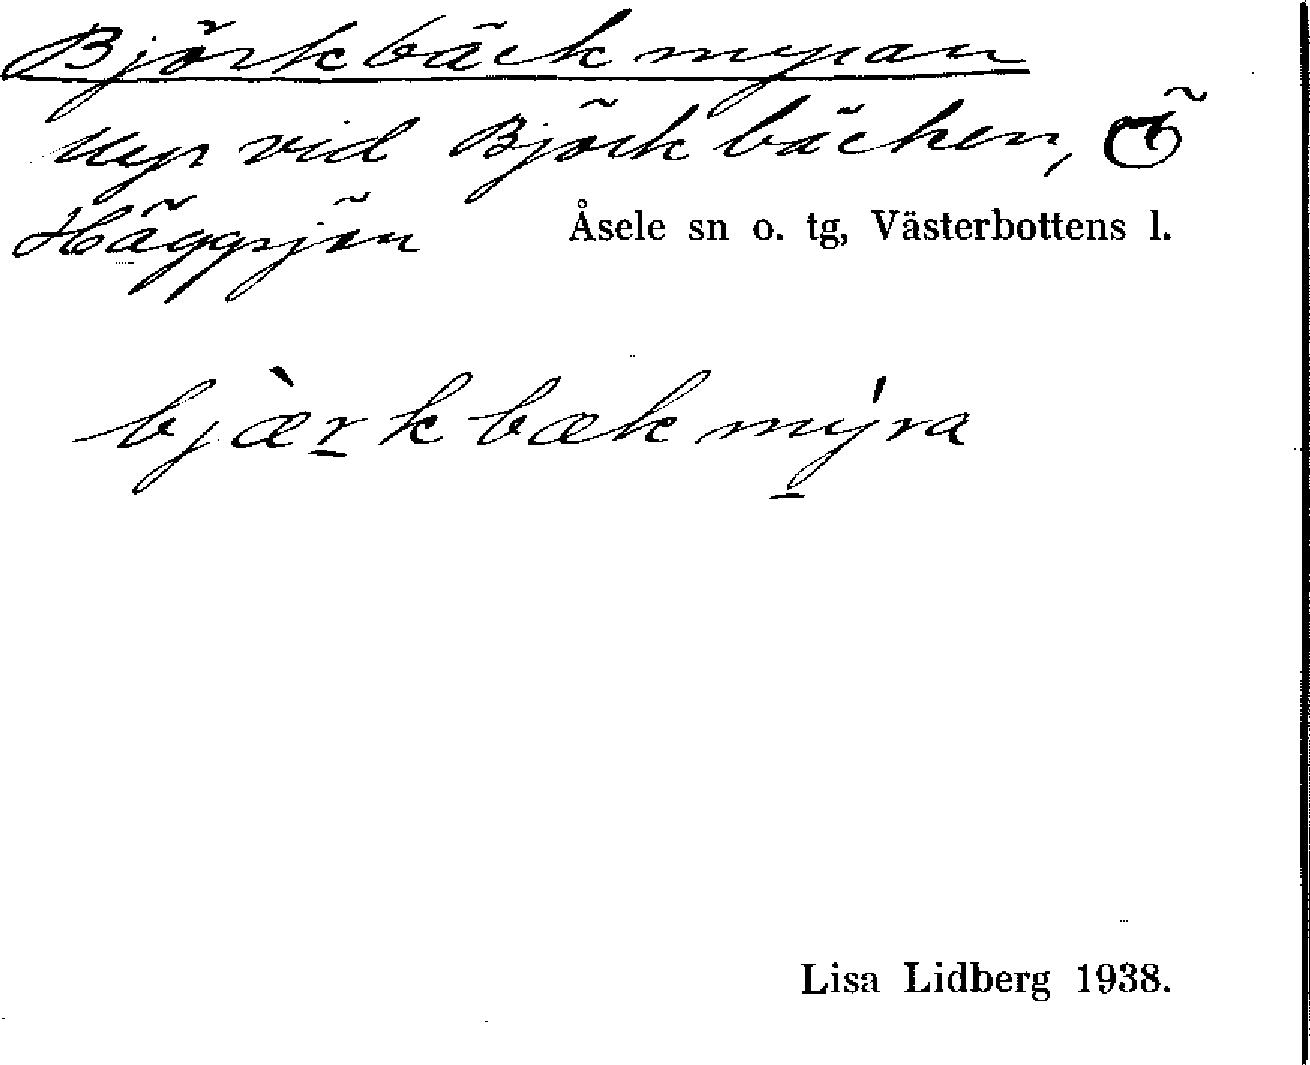 Björkbäckmyran
Myr vid Björkbäcken, Ö
Häggsjön Åsele sn o. tg, Västerbottens l.
bjæ̀r̲kbækmý̲ra
Lisa Lidberg 1938.